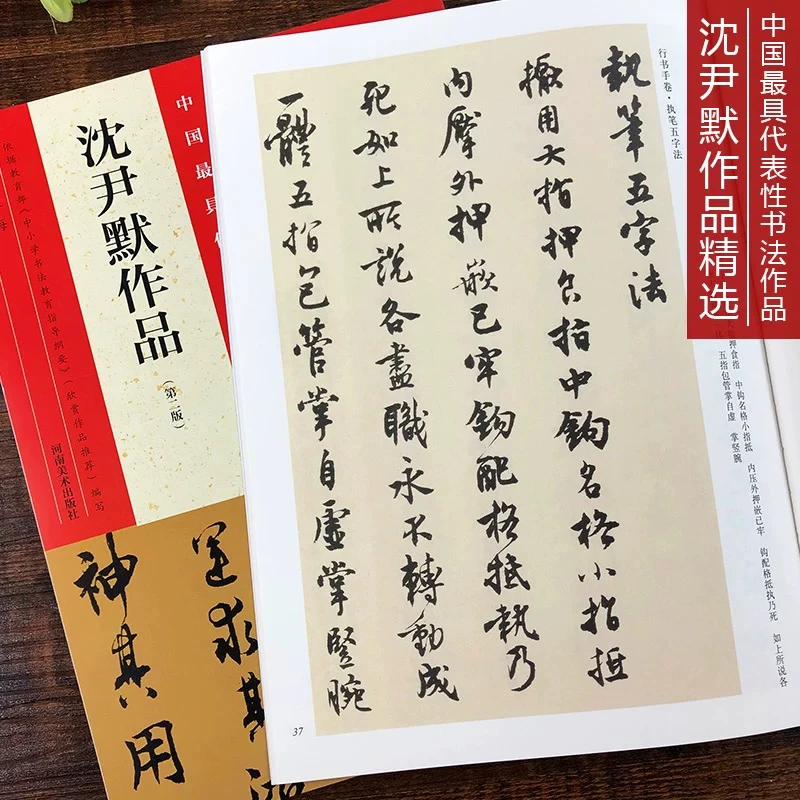 中国最具代表性书法作品
沈尹默作品精选
行书手卷·执笔五字法
執筆五字法
擫用大指押食指中鈎名格小指抵
内壓外押嵌已牢鈎配格抵執乃
死如上所說各盡職永不轉動成
一體五指包管掌自虛掌豎腕
指押食指 中钩名格小指抵 内压外押嵌已牢 钩配格抵执乃死 如上所说各
体 五指包管掌自虚 掌竖腕
37
中国最具
沈尹默作品
(第二版)
依据教育部《中小学书法教育指导纲要》(欣赏作品推荐)编写
河南美术出版社
神其用